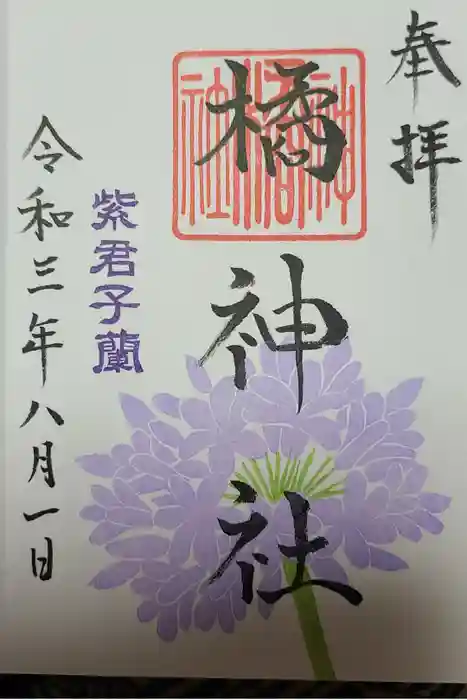 奉拝
橘神社
紫君子蘭
令和三年八月一日